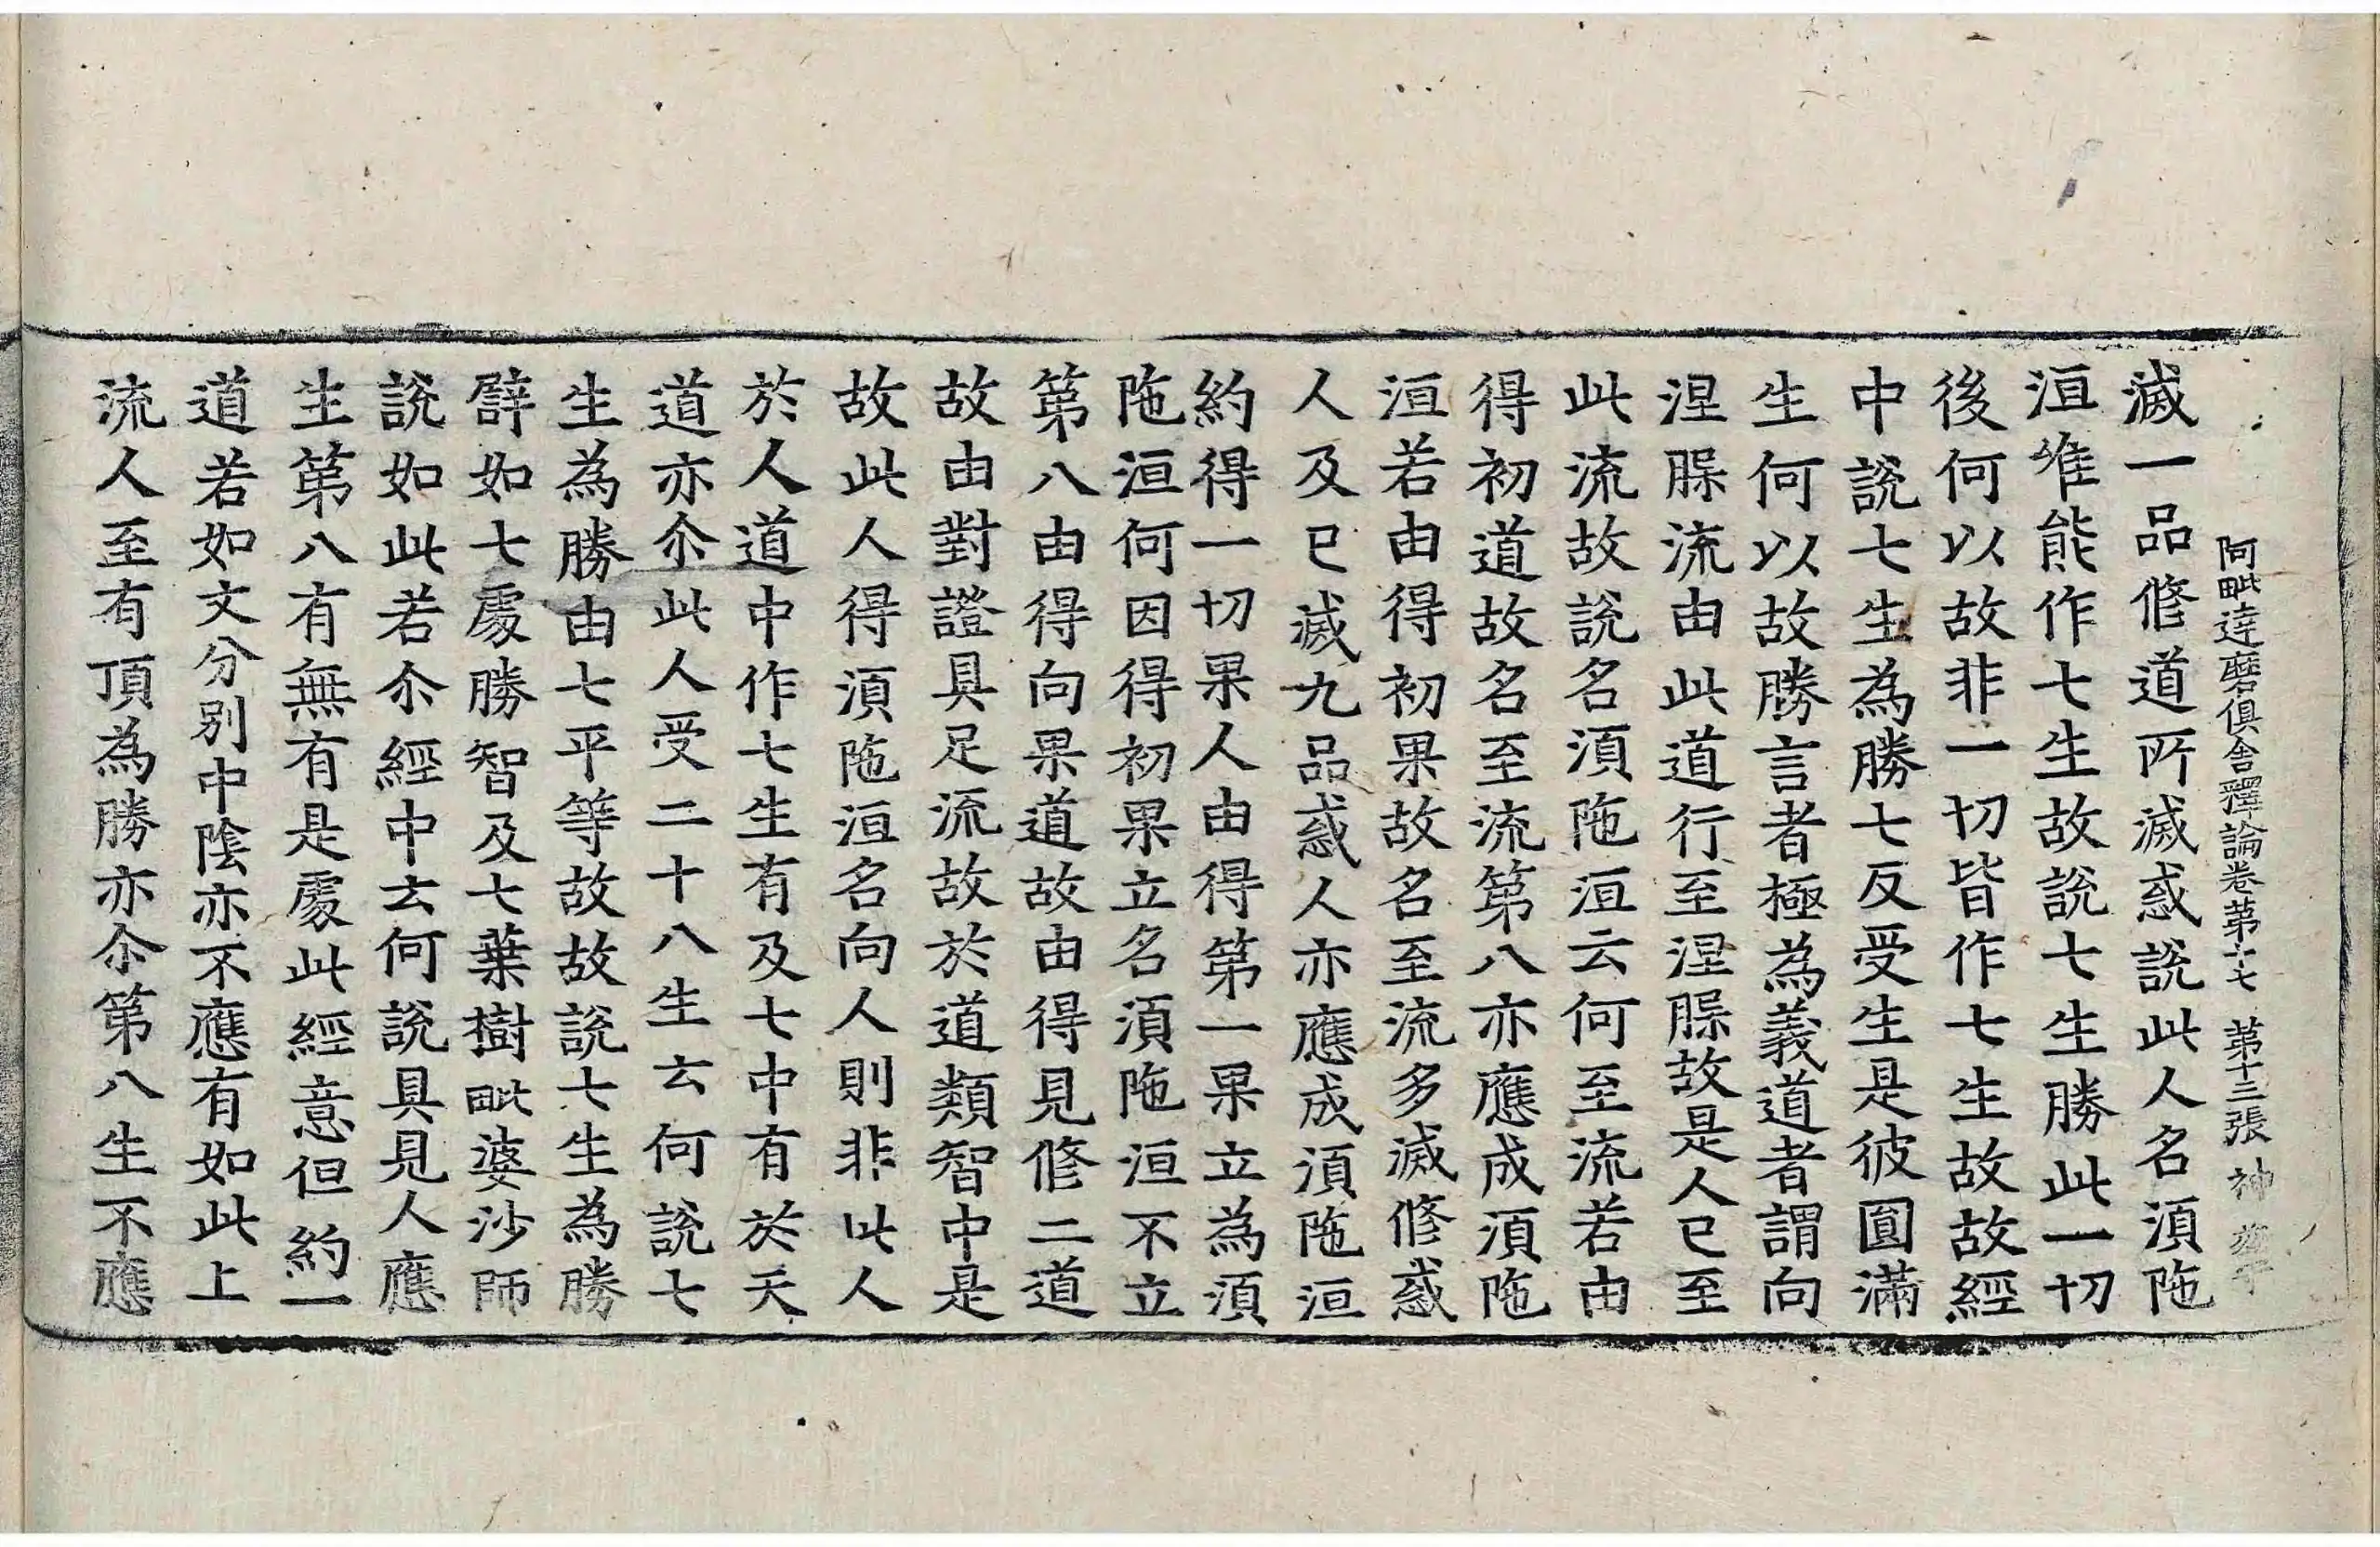 阿毗達磨俱舍釋論卷第十七 第十三張 神
滅一品修道所滅惑說此人名須陁
洹唯能作七生故說七生勝此一切
後何以故非一切皆作七生故故經
中說七生為勝七反受生是彼圓滿
生何以故勝言者極為義道者謂向
涅脲流由此道行至涅脲故是人已至
此流故說名須陁洹云何至流若由
得初道故名至流第八亦應成須陁
洹若由得初果故名至流多滅修惑
人及已滅九品惑人亦應成須陁洹
約得一切果人由得第一果立為須
陁洹何因得初果立名須陁洹不立
第八由得向果道故由得見修二道
故由對證具足流故於道類智中是
故此人得須陁洹名向人則非此人
於人道中作七生有及七中有於天
道亦尒此人受二十八生云何說七
生為勝由七平等故故說七生為勝
譬如七處勝智及七葉樹毗婆沙師
說如此若尒經中云何說具見人應
生第八有無有是處此經意但約一
道若如文分別中陰亦不應有如此上
流人至有頂為勝亦尒第八生不應